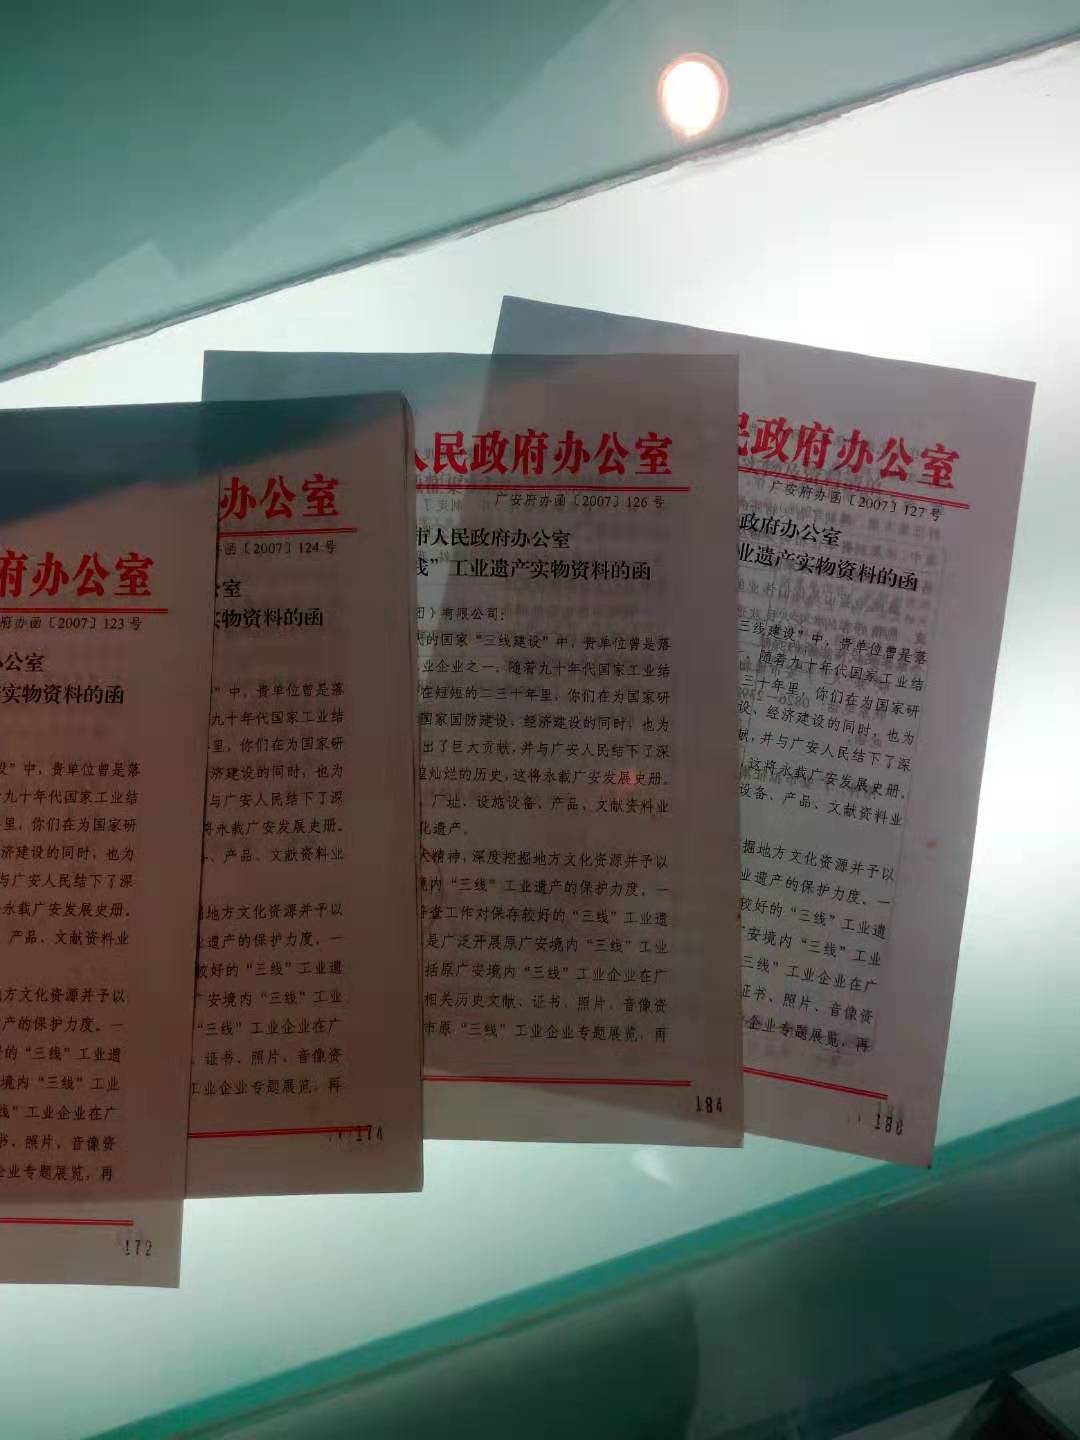 府办公室
府办函〔2007〕123号
公室
实物资料的函
设”中，贵单位曾是落
九十年代国家工业结
里，你们在为国家研
济建设的同时，也为
与广安人民结下了深
永载广安发展史册。
产品、文献资料业
地方文化资源并予以
产的保护力度。一
好的“三线”工业遗
境内“三线”工业
线”工业企业在广
书、照片，音像资
企业专题展览，再
172
办公室
办函〔2007〕124号
公室
实物资料的函
”中，贵单位曾是落
九十年代国家工业结
年里，你们在为国家研
济建设的同时，也为
与广安人民结下了深
将永载广安发展史册。
、产品、文献资料业
掘地方文化资源并予以
业遗产的保护力度，一
较好的“三线”工业遗
广安境内“三线”工业
“三线”工业企业在广
、证书、照片，音像资
工业企业专题展览，再
174
人民政府办公室
广安府办函〔2007〕126号
市人民政府办公室
线”工业遗产实物资料的函
团）有限公司：
的国家“三线建设”中，贵单位曾是落
业企业之一。随着九十年代国家工业结
在短短的二三十年里，你们在为国家研
国家国防建设、经济建设的同时，也为
出了巨大贡献，并与广安人民结下了深
煌灿烂的历史，这将永载广安发展史册。
厂址、设施设备、产品、文献资料业
化遗产。
大精神，深度挖掘地方文化资源并予以
境内“三线”工业遗产的保护力度。一
普查工作对保存较好的“三线”工业遗
是广泛开展原广安境内“三线”工业
括原广安境内“三线”工业企业在广
相关历史文献、证书、照片、音像资
市原“三线”工业企业专题展览，再
184
民政府办公室
广安府办函〔2007〕127号
政府办公室
业遗产实物资料的函
三线建设”中，贵单位曾是落
。随着九十年代国家工业结
三十年里，你们在为国家研
设、经济建设的同时，也为
献，并与广安人民结下了深
这将永载广安发展史册。
设备、产品、文献资料业
掘地方文化资源并予以
业遗产的保护力度。一
较好的“三线”工业遗
广安境内“三线”工业
三线”工业企业在广
证书、照片、音像资
业企业专题展览，再